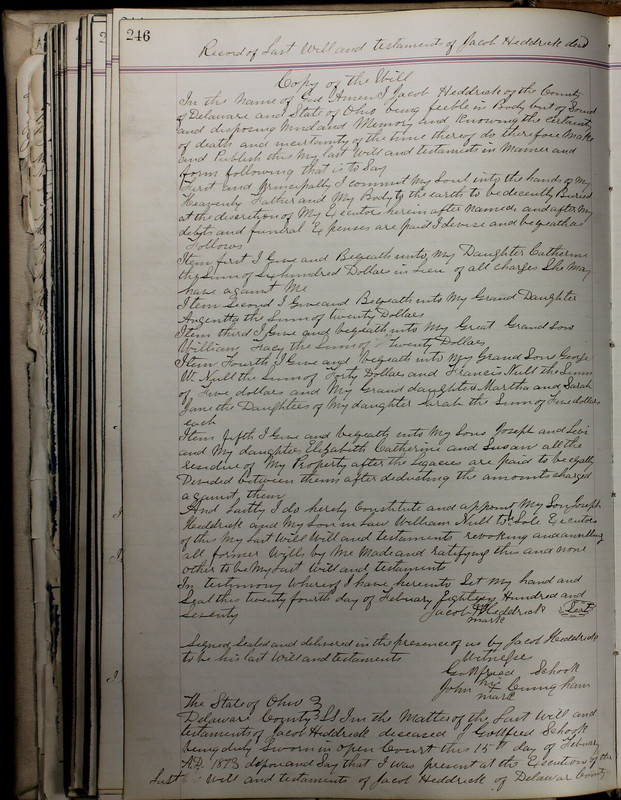 246
Record of Last Will and testament of Jacob Heddrick decd
Copy of the Will
In the Name of God Amen I Jacob Heddrick of the County
of Delaware and State of Ohio being feeble in Body but of Sound
and disposing Mind and Memory and Knowing the certainty
of death and uncertainty of the time thereof do therefore Make
and Publish this My last Will and testaments in Manner and
form following that is to Say
First and Principally I commit My Soul into the hands of My
Heavenly Father and My Body to the earth to be decently Buried
at the discretion of My Executors herein after Named, and after My
debts and funeral Expenses are paid I devise and bequeath as
Follows
Item first I Give and Bequeath unto, My Daughter Catherine
the Sum of Six hundred Dollars in Lieu of all charges She May
have against Me
Item Second I Give and Bequeath unto My Grand Daughter
the Sum of twenty Dollars
Item third I Give and bequeath unto My Great Grand Son
William Tracy the Sum of twenty Dollars,
Item Fourth I Give and bequeath unto My Grand Sons George
W. Null the Sum of Forty Dollars and Francis Null the Sum
of Five dollars and My Grand daughters Martha and Sarah
Jane the Daughters of My daughter Sarah the Sum of Five dollars
each
Item fifth I Give and bequeath unto My Sons Joseph and Levi
and My daughters Elizabeth Catherine and Susan all the
residue of My Property after the Legacies are paid to be equally
Devided between them after deducting the amounts charged
against them
And Lastly I do hereby Constitute and appoint My Son Joseph
Heddrick and My Son in Law William Null to Sole Executors
of this My Last Will Will and testaments revoking and annulling
all former Wills by Me Made and ratifying this and none
other to be My Last Will and, testaments
In testimony whereof I have hereunto Set My hand and
Seal this twenty fourth day of February Eighteen Hundred and
Seventy Jacob Heddrick Seal
mark
Signed, Sealed and delivered in the presence of us by Jacob Heddrick
to be his last Will and testaments Witnesses
Schook
his
John Cuningham
mark
The State of Ohio }
Delaware County } SS In the Matter of the Last Will and
testaments of Jacob Heddrick deceased I Gottfried Schook
being duly Sworn in open Court this 15th day of February
A.D. 1873 depose and Say that I was present at the Execution of the
Last Will and testaments of Jacob Heddrick of Delawar County